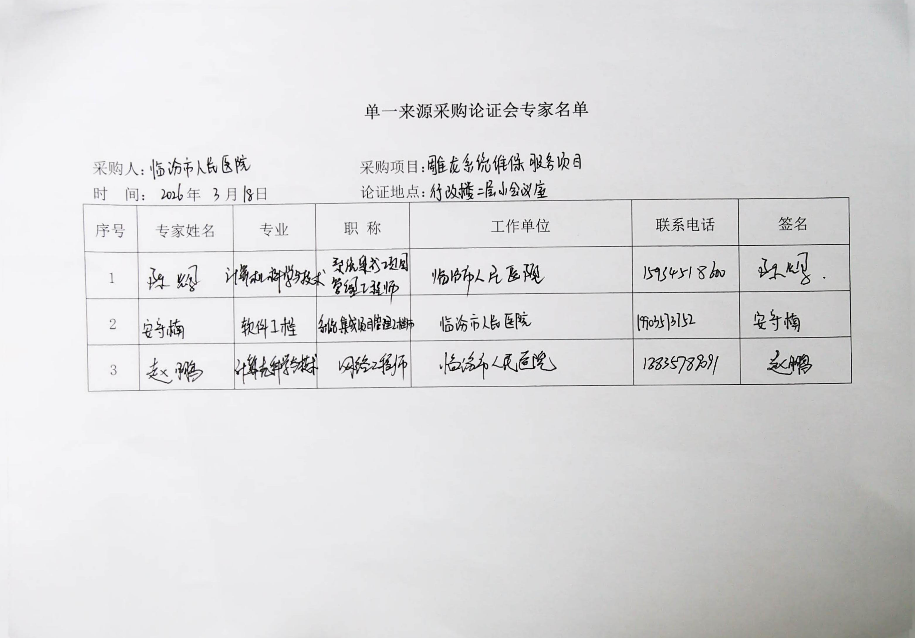 单一来源采购论证会专家名单
采购人:临汾市人民医院 采购项目:雕龙系统维保服务项目
时 间: 2026年 3月18日 论证地点:行政楼二层小会议室
序号 专家姓名 专业 职 称 工作单位 联系电话 签名
1 陈 计算机科学与技术 系统集成项目管理工程师 临汾市人民医院 15934518600 陈
2 安守楠 软件工程 系统集成项目管理工程师 临汾市人民医院 安守楠
3 赵鹏 计算机科学与技术 网络工程师 临汾市人民医院 赵鹏